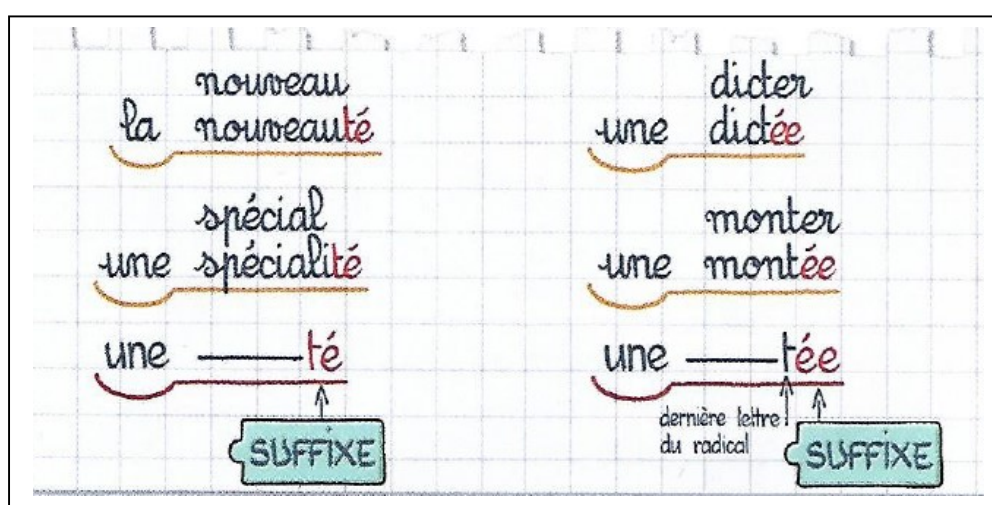 nouveau
la nouveauté
spécial
une spécialité
une té
SUFFIXE
dicter
une dictée
monter
une montée
une tée
dernière lettre
du radical
SUFFIXE